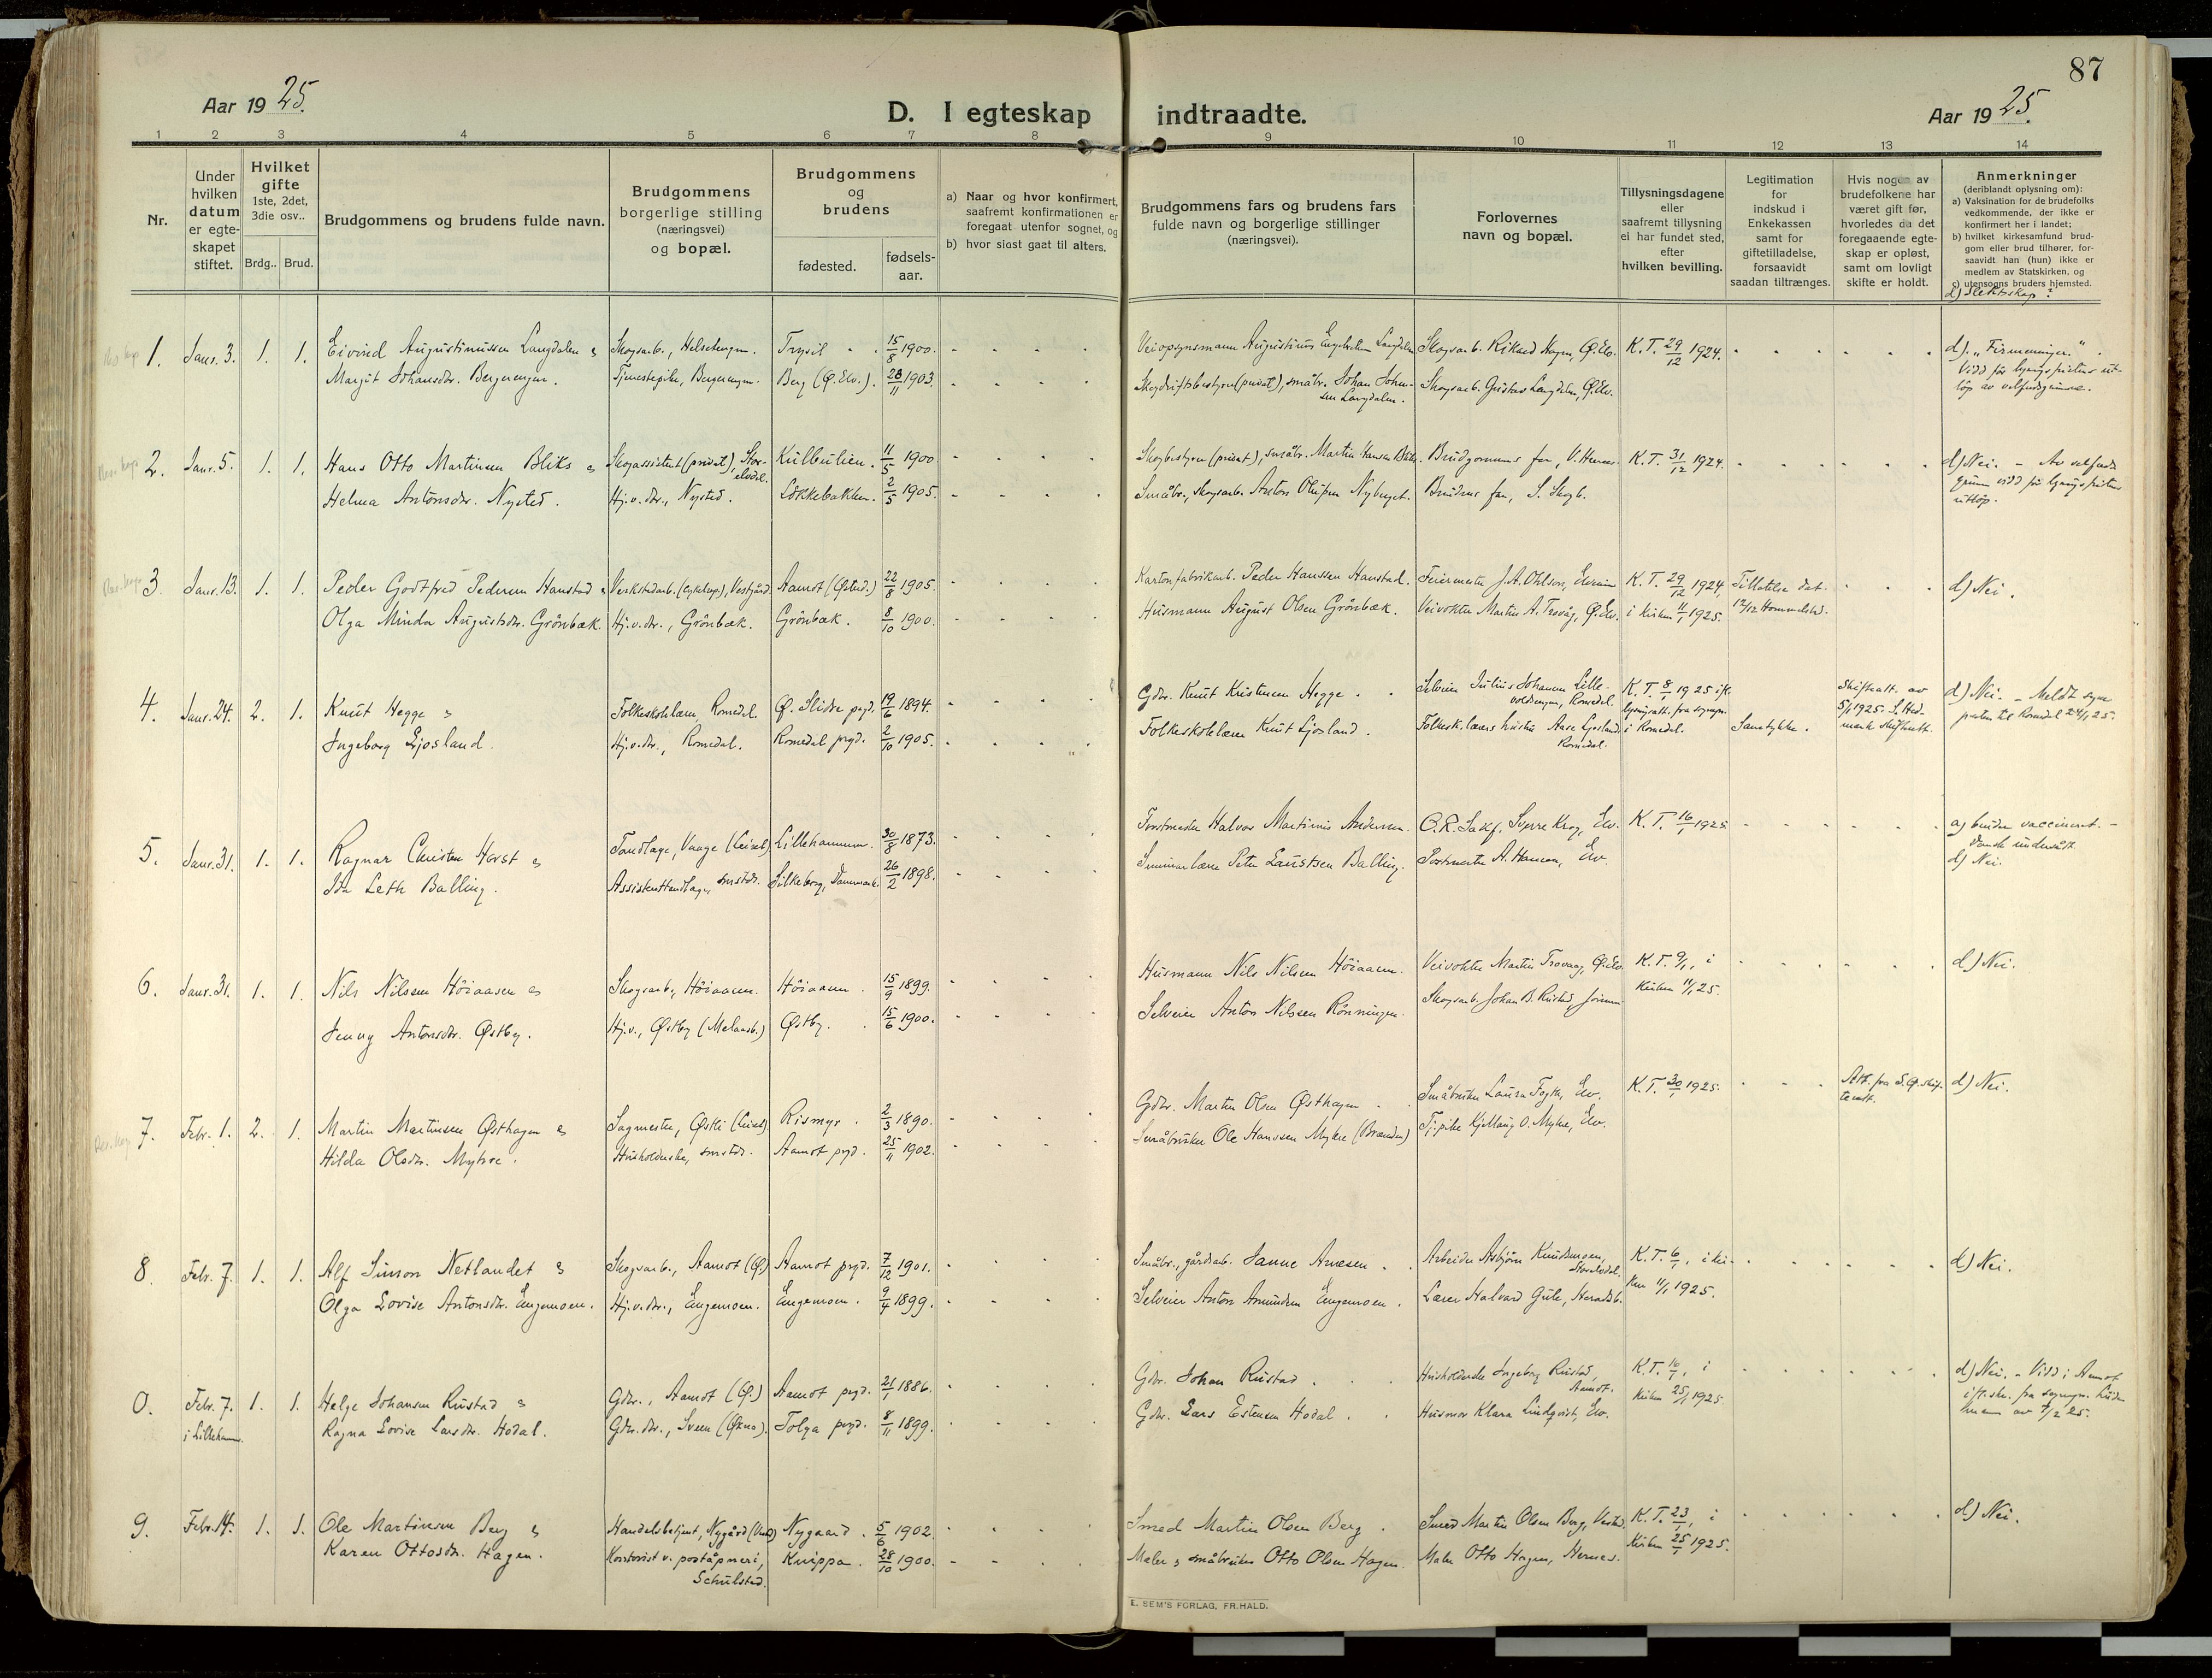 87
Aar 1925.
D. I egteskap indtraadte.
Aar 1925.
1 2 3 4 5 6 7 8 9 10 11 12 13 14
Nr.
Under hvilken datum er egte-skapet stiftet.
Hvilket gifte 1ste, 2det, 3die osv..
Brdg.. Brud.
Brudgommens og brudens fulde navn.
Brudgommens borgerlige stilling (næringsvei) og bopæl.
Brudgommens og brudens
fødested.
fødsels-aar.
a) Naar og hvor konfirmert, saafremt konfirmationen er foregaat utenfor sognet, og
b) hvor sisst gaat til alters.
Brudgommens fars og brudens fars fulde navn og borgerlige stillinger (næringsvei).
Forlovernes navn og bopæl.
Tillysningsdagene eller saafremt tillysning ei har fundet sted, efter hvilken bevilling.
Legitimation for indskud i Enkekassen samt for giftetilladelse, forsaavidt saadan tiltrænges.
Hvis nogen av brudefolkene har været gift før, hvorledes da det foregaaende egte-skap er opløst, samt om lovligt skifte er holdt.
Anmerkninger (deriblandt oplysning om):
a) Vaksination for de brudefolks vedkommende, der ikke er konfirmert her i landet;
b) hvilket kirkesamfund brud-gom eller brud tilhører, for-saavidt han (hun) ikke er medlem av Statskirken, og
c) utensogns bruders hjemsted.
d) Slektskap?
1. Janr. 3. 1. 1. Eivind Augustinussen Langdalen & Skogsarb., Trysil 15/8 1900. Veiopsynsmann Augustinus Engebretsen Langdalen Skogsarb. Rikard Hagen, Ø.Elv. K. T. 29/12 1924. d).
Margit Johansdr. Bergerengen. Tjenestepike, Bergerengen. Berg (Ø.Elv.). 28/11 1903. Skogdriftsbestyrer (privat), småbr. Johan Johan-sen Langdalen. Skogsarb. Gustav Langdalen, Ø.Elv.
2. Janr. 5. 1. 1. Hans Otto Martinsen Bliks & Skogassistent (privat), Stor-elvdal. Kulbulien. 11/5 1900 Skogbestyrer (privat), småbr. Martin Hansen Bliks. Brudgommens far, V. Hernes. K. T. 31/12 1924. d) Nei.
Helma Antonsdr. Nysted. Hj.v. dtr., Nysted. Løkkebakken. 2/5 1905. Småbr., skogsarb. Anton Olufsen Nybryet. Brudens far, S. Skogb.
3. Janr. 13. 1. 1. Peder Godtfred Pedersen Hanstad & Verkstedarb. Aamot (Østerd.) 22/8 1905. Kartonfabrikarb. Peder Hanssen Hanstad. Feiermester J. A. Ohlson, Elverum K. T. 29/12 1924, Tillatelse dat. d) Nei.
Olga Minda Augustsdr. Grönbæk. Hj.v. dtr., Grönbæk. Grönbæk. 8/10 1900. Husmann August Olsen Grönbæk. Veivokter Martin A. Trovåg, Ø.Elv. i kirken 11/1 1925. 12/12 Hommelstad.
4. Janr. 24. 2. 1. Knut Hegge & Folkeskolelærer, Romedal. Ø. Slidre prgd. 19/6 1894. Gdbr. Knut Kristensen Hegge. Selveier Julius Johansen Lille-voldengen, Romedal. K. T. 8/1 1925 ifl. lysningsatt. fra sognepr. Skifteatt. av 5/1 1925. S. Hed-mark skifterett. d) Nei. - Meldt sogne-presten til Romedal 24/1 25.
Ingeborg Ljosland. Hj.v. dtr., Romedal. Romedal prgd. 2/10 1905. Folkeskolelærer Knut Ljosland. Folkesk.lærers hustru Aase Ljosland Romedal. i Romedal. Samtykke.
5. Janr. 31. 1. 1. Ragnar Christen Horst & Tandlæge, Vaage (Leiret) Lillehammer. 30/8 1873. Forstmester Halvor Martinius Andersen. O.R. Sakf. Sverre Krog, Elv. K. T. 16/1 1925. a) bruden vaccineret. - Dansk undersått.
Ida Leth Balling. Assistenttandlæge, smstds. Silkeborg, Danmark. 26/2 1898. Seminarlærer Peter Laustsen Balling. Postmester A. Hansen, Elv. d) Nei.
6. Janr. 31. 1. 1. Nils Nilsen Höiaasen & Skogsarb., Höiaasen. Höiaasen. 15/9 1899. Husmann Nils Nilsen Höiaasen. Veivokter Martin Trovaag, Ø.Elv. K. T. 9/1, i d) Nei.
Jenny Antonsdr. Østby. Hj.v., Østby (Melaasb.) Østby. 15/6 1900. Selveier Anton Nilssen Rönningen. Skogsarb. Johan B. Rustad, kirken 11/1 25.
7. Febr. 1. 2. 1. Martin Martinsen Østhagen & Sagmester, (Leiret) Rismyr. 2/3 1890. Gdbr. Martin Olsen Østhagen. Småbruker Laura Elv. K. T. 30/1 1925. Att. fra S. Ø. skif-terett. d) Nei.
Hilda Olsdr. Myhre. Husholderske, smstds. Aamot prgd. 25/11 1902. Småbruker Ole Hanssen Myhre (Brænden) Tj.pike Kjellaug O. Myhre, Elv.
8. Febr. 7. 1. 1. Alf Simon Netlandet & Skogsarb., Aamot (Ø.) Aamot prgd. 7/12 1901. Småbr., gårdsarb. Janne Arnesen. Arbeider Asbjörn Knudsmoen, Storelvdal. K. T. 6/1, i kir- d) Nei.
Olga Lovise Antonsdr. Engemoen. Hj.v. dtr., Engemoen. Engemoen. 9/4 1899. Selveier Anton Amundsen Engemoen. Lærer Halvard Gule, Heradsb. ken 11/1 1925.
0. Febr. 7. 1. 1. Helge Johansen Rustad & Gdbr., Aamot (Ø.) Aamot prgd. 21/1 1886. Gdbr. Johan Rustad. Husholderske Ingeborg Rustad, Aamot. K. T. 16/1, i d) Nei. - Viet i Aamot
i Lilleham. Ragna Lovise Larsdr. Hodal. Gdbr. dtr., Sveen (Økna). Tolga prgd. 8/11 1899. Gdbr. Lars Estensen Hodal. Husmor Klara Lindqvist, Elv. kirken 25/1 1925.
9. Febr. 14. 1. 1. Ole Martinsen Berg & Handelsbetjent, Nygård Nygaard. 5/6 1902. Smed Martin Olsen Berg. Smed Martin Olsen Berg, K. T. 23/1, i d) Nei.
Karen Ottosdr. Hagen. Kontorist v. poståpneri, Schulstad. Knippa. 28/10 1900. Maler & småbruker Otto Olsen Hagen. Maler Otto Hagen, Hernes. kirken 25/1 1925.
E. SEM'S FORLAG, FR.HALD.